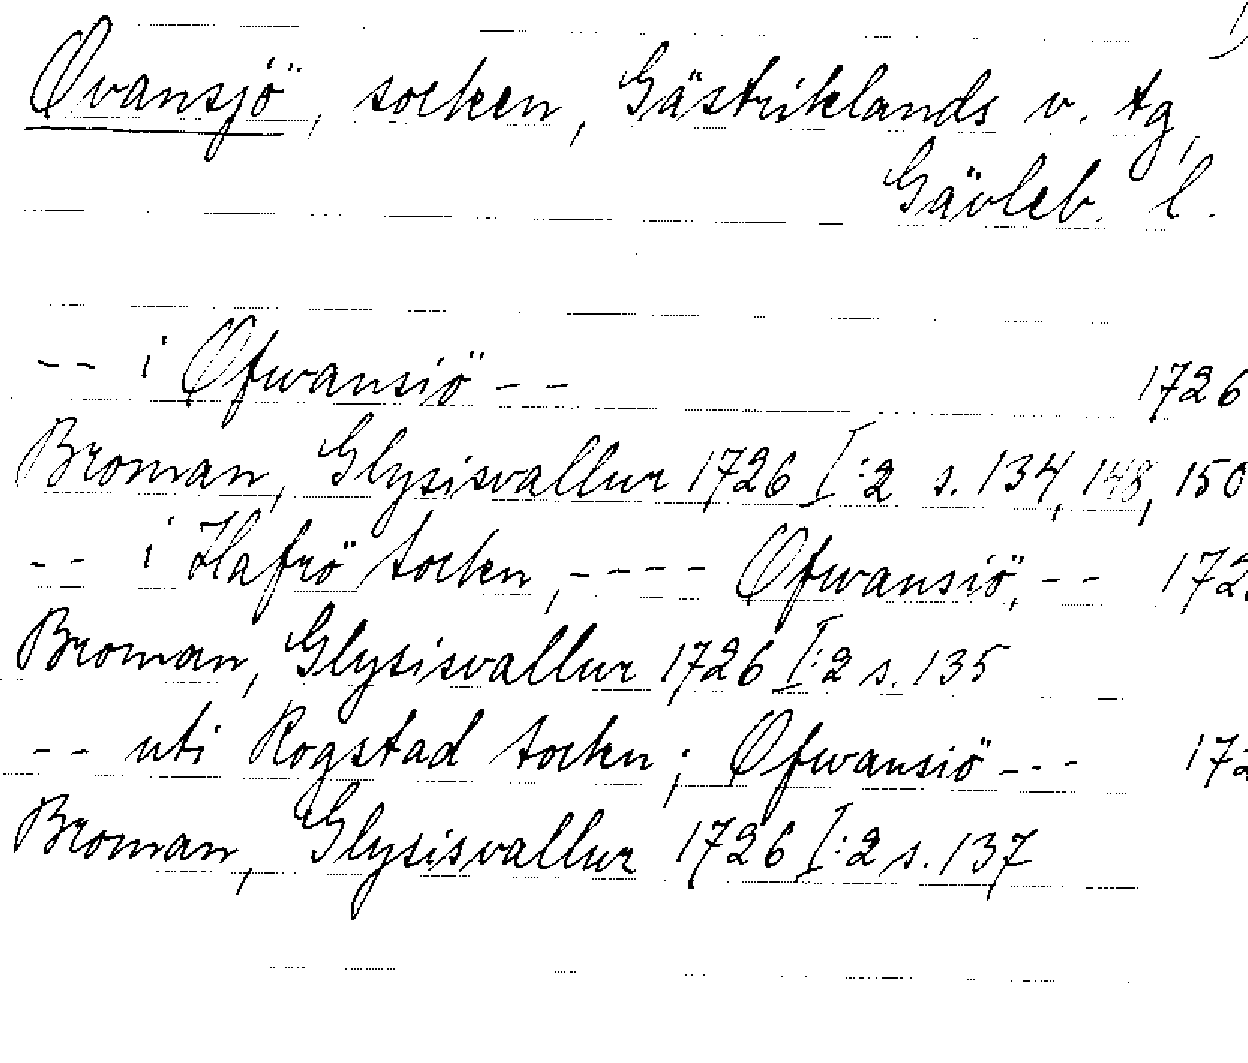 1)
Ovansjö, socken, Gästriklands v. tg,
Gävleb. l.
-- i Ofwansiö -- 1726
Broman, Glysisvallur 1726 I:2 s. 134, 148, 150
-- i Hafrö socken, ---- Ofwansiö, -- 172
Broman, Glysisvallur 1726 I:2 s. 135
-- uti Rogstad socken; Ofwansiö --- 172
Broman, Glysisvallur 1726 I:2 s. 137